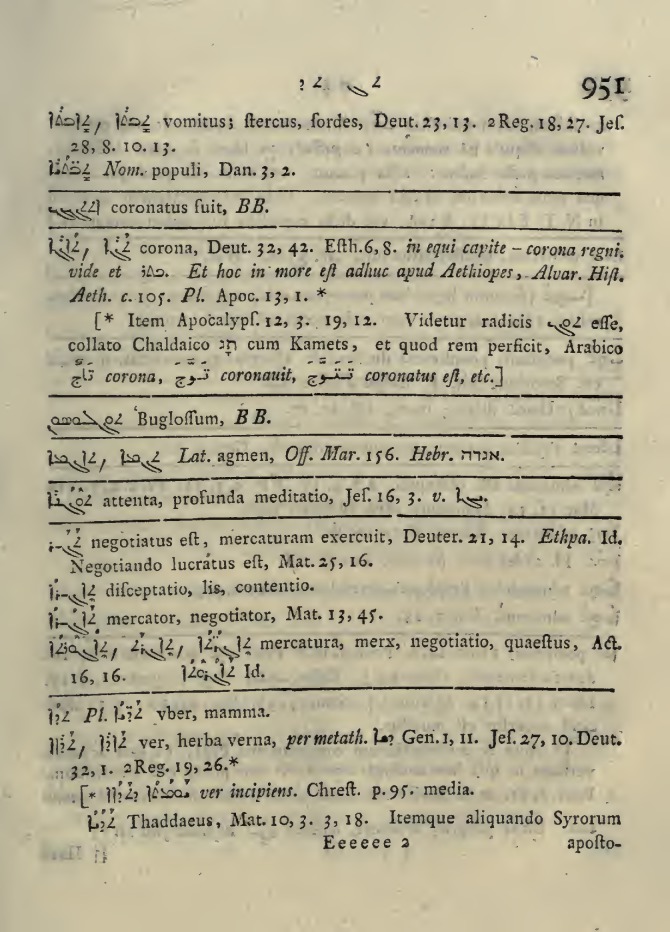 ܬܓ ܬܕ 951
vomitus; ſtercus, ſordes, Deut. 23, 13. 2 Reg. 18, 27. Jeſ.
28, 8. 10. 13.
Nom. populi, Dan. 3, 2.
coronatus fuit, BB.
ܬܓܐ, ܬܐܓܐ corona, Deut. 32, 42. Eſth. 6, 8. in equi capite – corona regni.
vide et ܟܬܪ. Et hoc in more eſt adhuc apud Aethiopes, Alvar. Hiſt.
Aeth. c. 105. Pl. Apoc. 13, 1. *
[* Item Apocalypſ. 12, 3. 19, 12. Videtur radicis ܬܘܓ eſſe,
collato Chaldaico תג cum Kamets, et quod rem perficit, Arabico
تاج corona, توج coronauit, تتوج coronatus eſt, etc.]
Bugloſſum, BB.
Lat. agmen, Off. Mar. 156. Hebr. אגדה.
attenta, profunda meditatio, Jeſ. 16, 3. v. ܗܓܐ.
ܬܓܪ negotiatus eſt, mercaturam exercuit, Deuter. 21, 14. Ethpa. Id.
Negotiando lucratus eſt, Mat. 25, 16.
ܬܐܓܪܐ diſceptatio, lis, contentio.
ܬܐܓܪܐ mercator, negotiator, Mat. 13, 45.
mercatura, merx, negotiatio, quaeſtus, Act.
16, 16. Id.
ܬܕܐ Pl. ܬܕܝܐ vber, mamma.
ܬܕܐܐ, ܬܐܕܐ ver, herba verna, per metath. ܕܬܐ Gen. 1, 11. Jeſ. 27, 10. Deut.
32, 1. 2 Reg. 19, 26. *
[* ver incipiens. Chreſt. p. 95. media.
ܬܕܝ Thaddaeus, Mat. 10, 3. 3, 18. Itemque aliquando Syrorum
Eeeeee 2 apoſto-